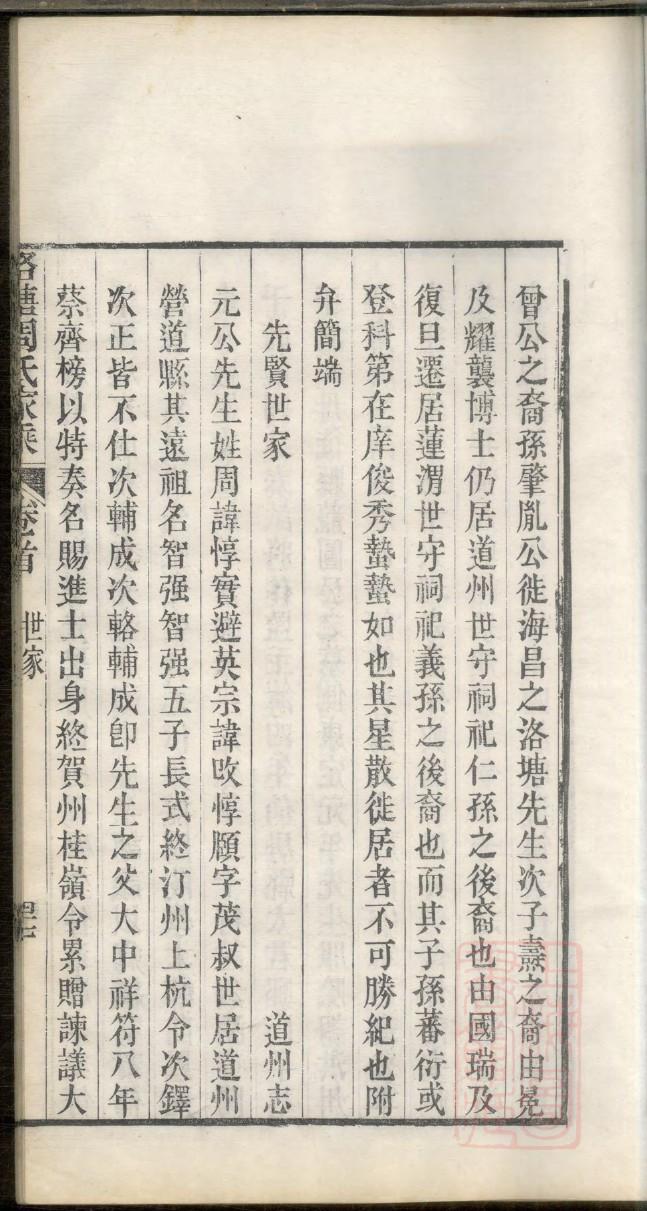 曾公之裔孫肇胤公徙海昌之洛塘先生次子燾之裔由冕
及耀襲博士仍居道州世守祠祀仁孫之後裔也由國瑞及
復旦遷居蓮渭世守祠祀義孫之後裔也而其子孫蕃衍或
登科第在庠俊秀蟄蟄如也其星散徙居者不可勝紀也附
弁簡端
先賢世家　道州志
元公先生姓周諱惇實避英宗諱改惇頤字茂叔世居道州
營道縣其遠祖名智强智强五子長式終汀州上杭令次鐸
次正皆不仕次輔成次輅輔成卽先生之父大中祥符八年
蔡齊榜以特奏名賜進士出身終賀州桂嶺令累贈諫議大
洛塘周氏家乘　卷首　世家